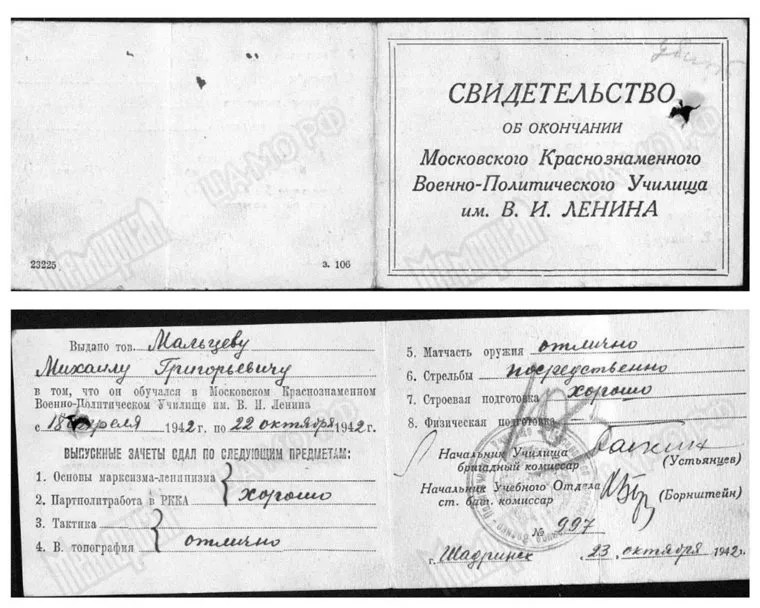 СВИДЕТЕЛЬСТВО
ОБ ОКОНЧАНИИ
Московского Краснознаменного
Военно-Политического Училища
им. В. И. ЛЕНИНА
23225
з. 106
ЦАМО РФ
Мемориал
Выдано тов. Мальцеву
Михаилу Григорьевичу
в том, что он обучался в Московском Краснознаменном
Военно-Политическом Училище им. В. И. Ленина
с 18 апреля 1942 г. по 22 октября 1942 г.
ВЫПУСКНЫЕ ЗАЧЕТЫ СДАЛ ПО СЛЕДУЮЩИМ ПРЕДМЕТАМ:
1. Основы марксизма-ленинизма
2. Партполитработа в РККА хорошо
3. Тактика
4. В. топография отлично
5. Матчасть оружия отлично
6. Стрельбы посредственно
7. Строевая подготовка хорошо
8. Физическая подготовка
Начальник Училища
бригадный комиссар (Устьянцев)
Начальник Учебного Отдела
ст. бат. комиссар (Борнштейн)
№ 997
г. Шадринск 23 октября 1942 г.